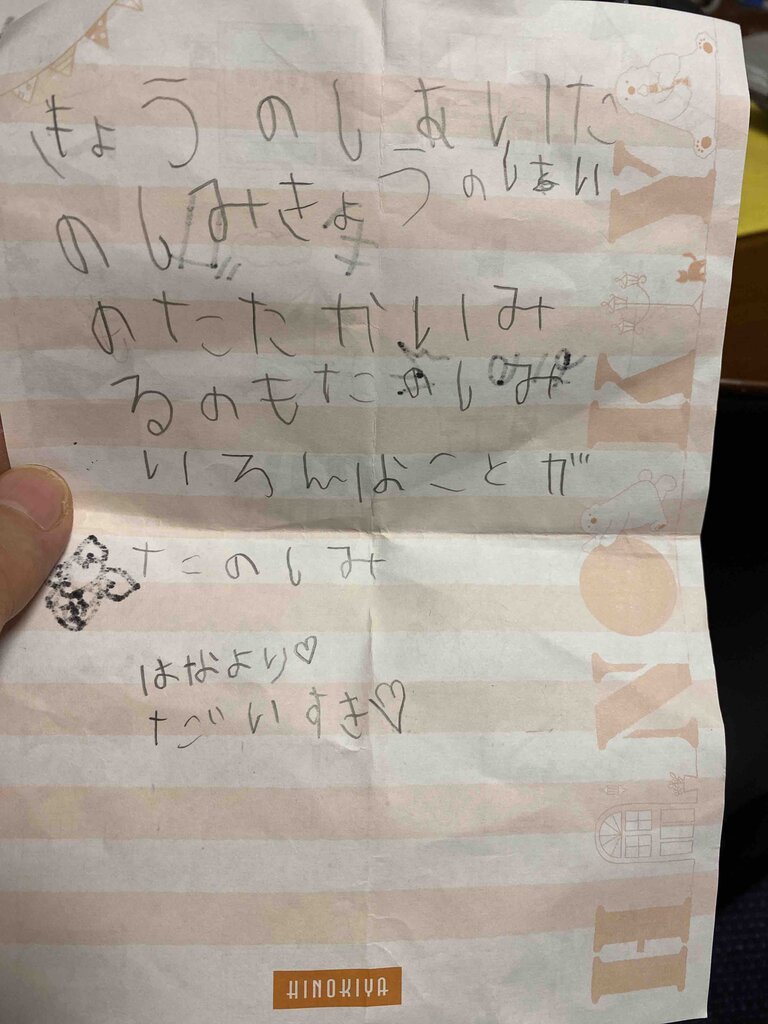 きょうのしあいた
のしみきょうのしあい
のたたかいみ
るのもたのしみ
いろんなことが
たのしみ
はなより♡
だいすき♡
HINOKIYA